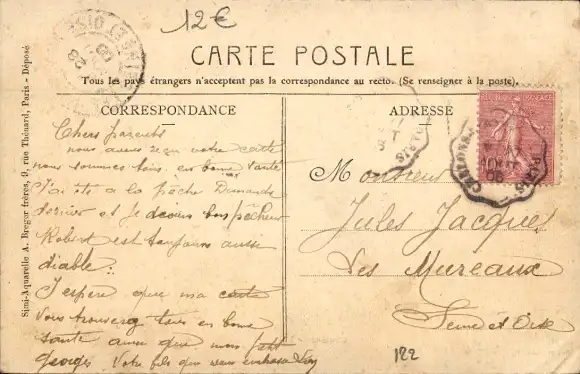 12€
CARTE POSTALE
Tous les pays étrangers n'acceptent pas la correspondance au recto. (Se renseigner à la poste).
CORRESPONDANCE
ADRESSE
Simi-Aquarelle A. Breger frères, 9, rue Thénard, Paris - Déposé
Chers parents
nous avons reçu votre carte
nous sommes tous en bonne santé
J'ai été a la pêche Dimanche
dernier et je deviens bon pêcheur
Robert est toujours aussi
diable.
J'espère que ma carte
vous trouvera tous en bonne
santé ainsi que mon petit
georges Votre fils que vous embrasse
Monsieur
Jules Jacques
Les Mureaux
Seine et Oise
PARIS
122